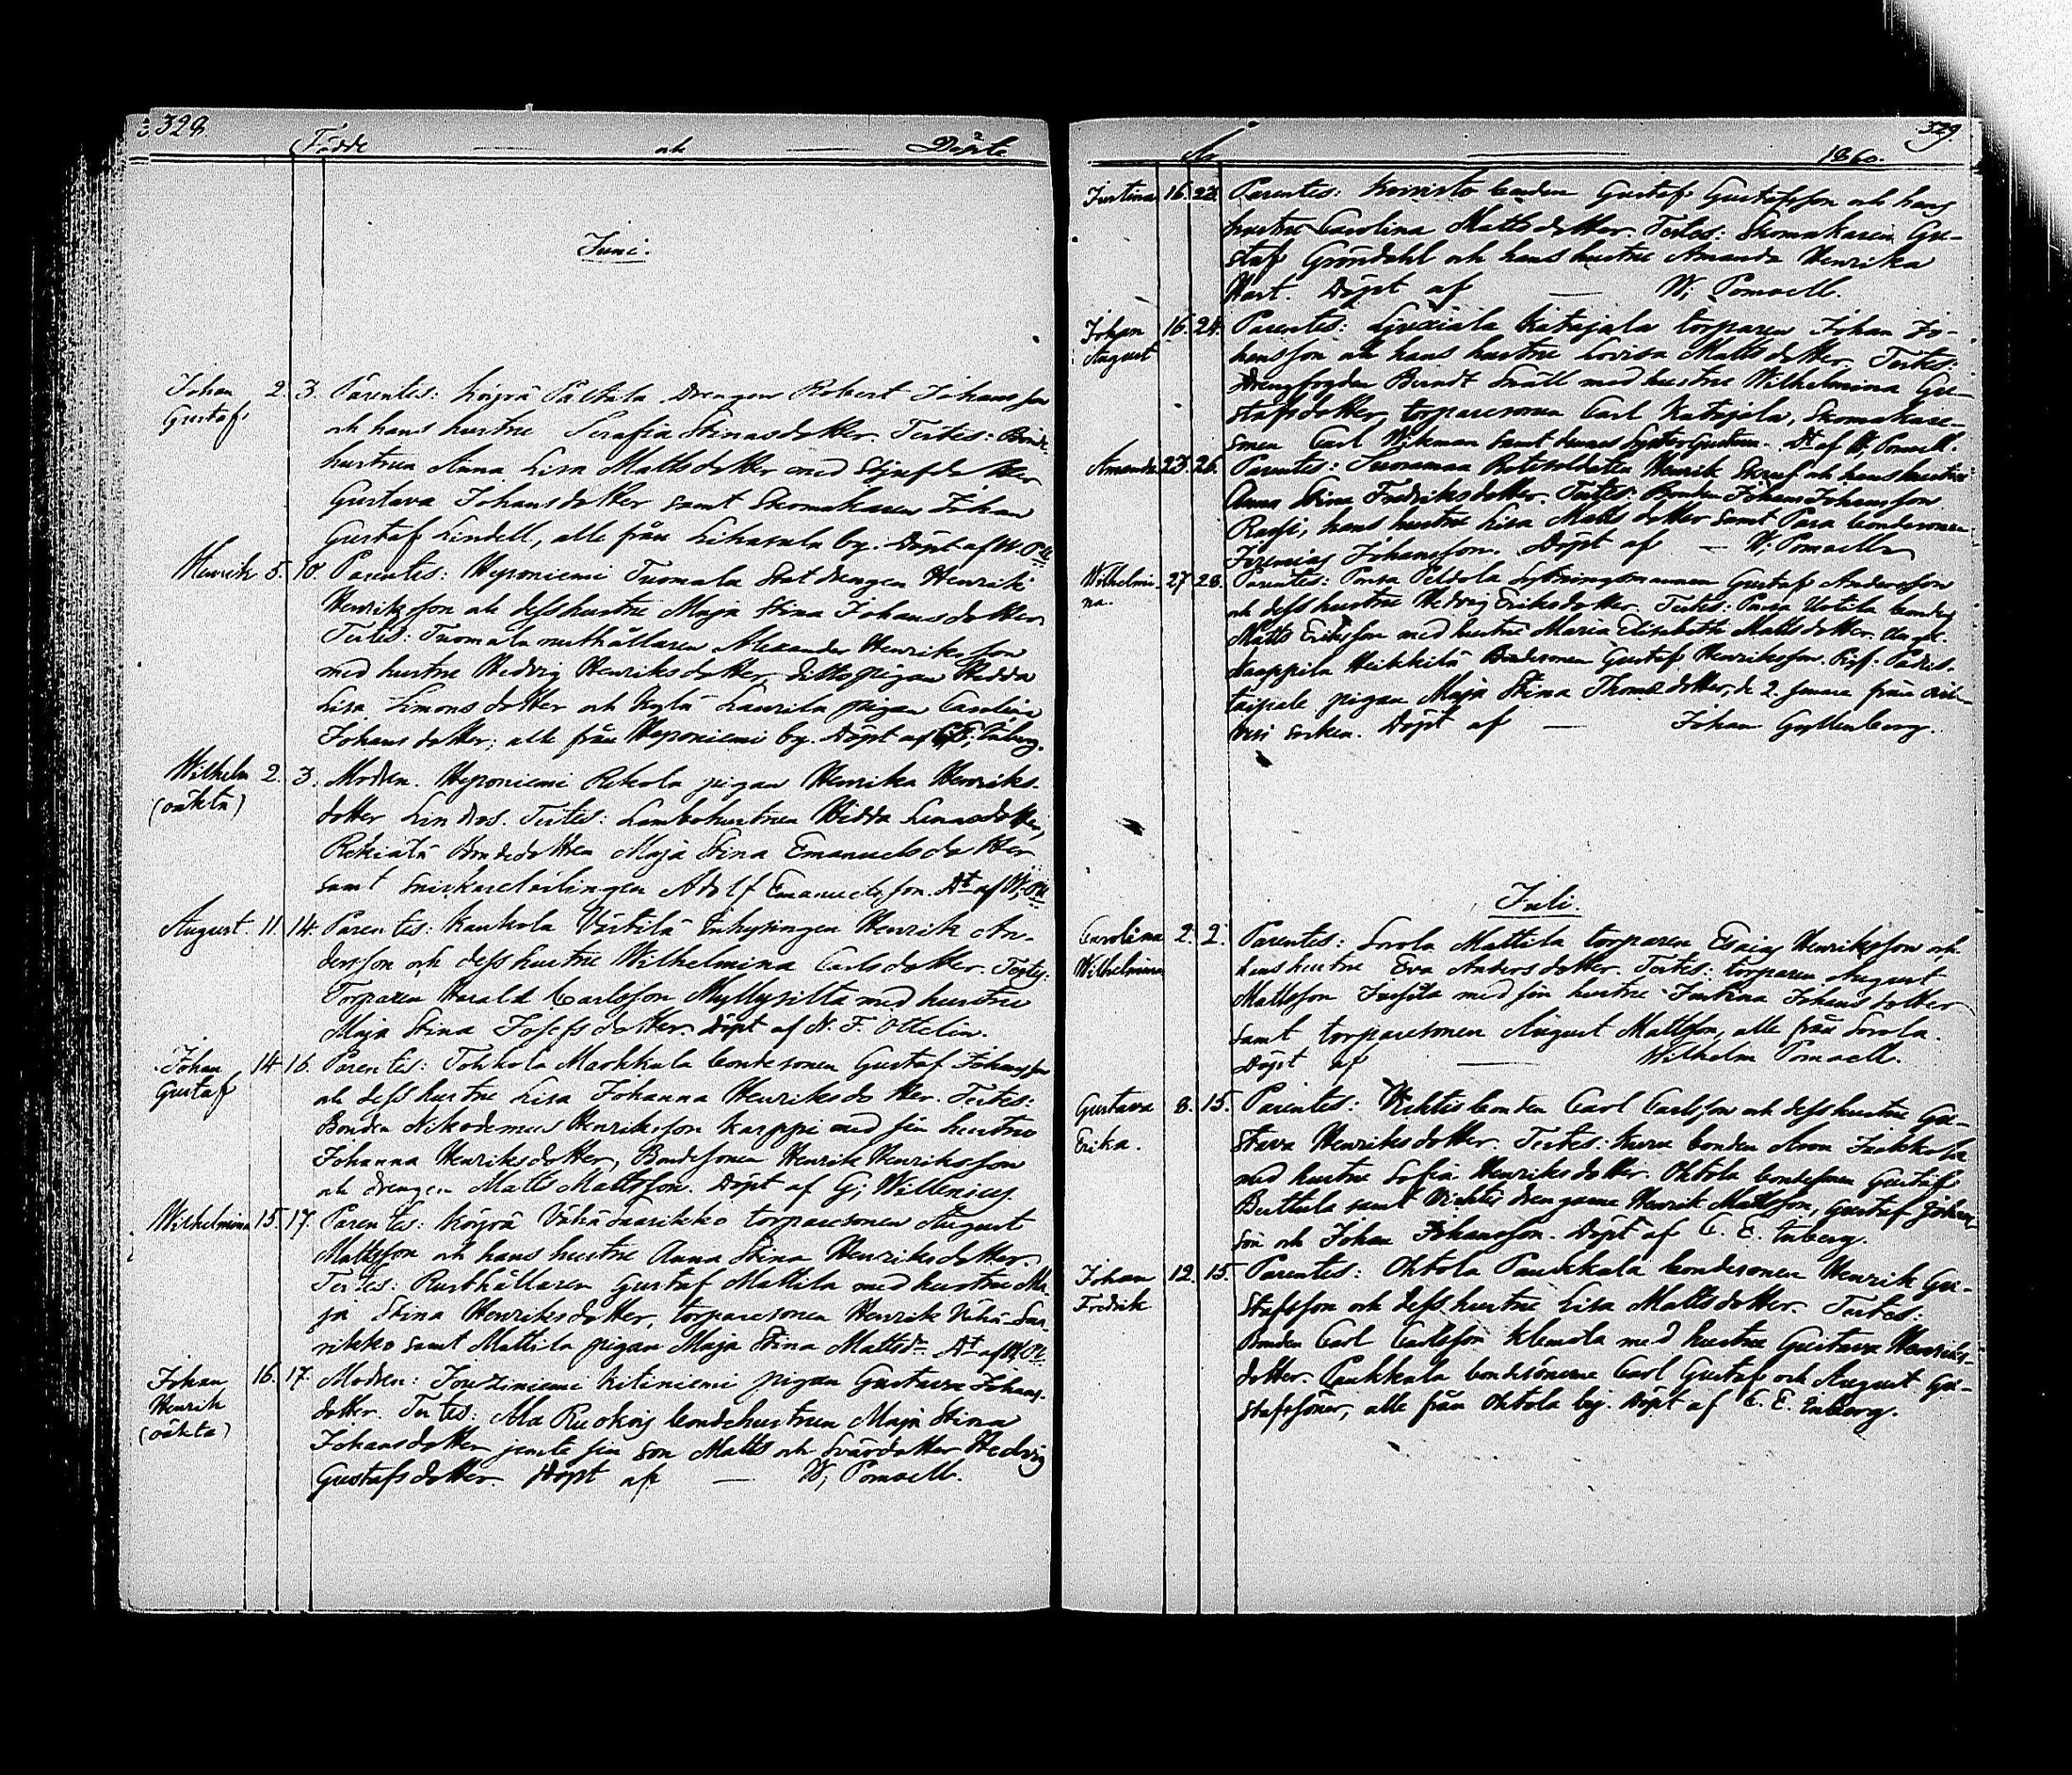 328.
Födde — och — Döpte
Juni.
Johan 2. 3. Parentes: Köyrä Pältsila Drengen Robert Johansson
Gustaf och hans hustru Serafia Stinasdotter. Testes: Bonde
hustrun Anna Lisa Mattsdotter med Styfdotter
Gustava Johansdotter samt Skomakaren Johan
Gustaf Lindell, alle från Likasula by. Döpt af W. P-ll
Henrik 5. 10. Parentes: Heponiemi Tuomala Statdrengen Henrik
Henriksson och dess hustru Maja Stina Johansdotter
Testes: Tuomala rusthållaren Alexander Henriksson
med hustru Hedvig Henriksdotter, ditto pigan Hedda
Lisa Simonsdotter och Kylä Laurila pigan Carolina
Johansdotter; alle från Heponiemi by. Döpt af C. E. Enberg.
Wilhelm 2. 3. Modren. Heponiemi Rekola pigan Henrika Henriks-
(oäkta) dotter Lindros. Testes: Lambohustrun Hedda Lenasdotter,
Bondedottren Maja Stina Emanuelsdotter
samt Snickarelärlingen Adolf Emanuelsson. Dt af W. P-ll
August 11. 14. Parentes: Kauhola Värtilä Inhysingen Henrik An-
dersson och dess hustru Wilhelmina Carlsdotter. Testes:
Torparen Harald Carlsson Myllysilta med hustru
Maja Stina Josefsdotter. Döpt af N. F. Ottelin.
Johan 14. 16. Parentes: Tohkola Markkula bondesonen Gustaf Johansson
Gustaf och dess hustru Lisa Johanna Henriksdotter. Testes:
Bonden Nikodemus Henriksson Karppi med sin hustru
Johanna Henriksdotter, Bondesonen Henrik Henriksson
och drengen Matts Mattsson. Döpt af G; Willenius.
Wilhelmina 15. 17. Parentes: Köyrä Vähä Saarikko torparesonen August
Mattsson och hans hustru Anna Stina Henriksdotter.
Testes: Rusthållaren Gustaf Mattila med hustru Ma-
ja Stina Henriksdotter, torparesonen Henrik Vähä-Saa-
rikko samt Mattila pigan Maja Stina Mattsdr. Dt af W. P-ll
Johan 16. 17. Modren: Jonziniemi Kitiniemi pigan Gustava Johans-
Henrik dotter. Testes: Ala Ruokois bondehustrun Maja Stina
(oäkta) Johansdotter jemte sin son Matts och Svärdotter Hedvig
Gustafsdotter. Döpt af — W; Pomoell.
329.
År — 1860.
Justina 16. 23. Parentes: Koivisto bonden Gustaf Gustafsson och hans
hustru Carolina Mattsdotter. Testes: Skomakaren Gu-
staf Gröndahl och hans hustru Amanda Henrika
Hart. Döpt af — W; Pomoell.
Johan 16. 24. Parentes: Sjuxiala Katajala torparen Johan Jo-
August hansson och hans hustru Lovisa Mattsdotter. Testes:
Drengfogden Berndt Snäll med hustru Wilhelmina Gu-
stafsdotter, torparesonen Carl Katajala, Skomakare-
sonen Carl Wikman samt dennes Syster Gustava. Dt af W, Pomoell.
Amanda 23. 26. Parentes: Suoramaa Rotesoldaten Henrik Skruf och hans hustru
Anna Stina Fredriksdotter. Testes: Bonden Johan Johansson
Raasi, hans hustru Lisa Mattsdotter samt Para bondesonen
Jeremias Johansson. Döpt af — W; Pomoell
Wilhelmi- 27. 28. Parentes: Punsa Peldola Sytningsmannen Gustaf Andersson
na. och dess hustru Hedvig Eriksdotter. Testes: Punsa Uotila bonden
Matts Eriksson med hustru Maria Elisabeth Mattsdotter.
Kaappila Heikkilä Bondesonen Gustaf Henriksson.
taipale pigan Maja Stina Thomasdotter, de 2. senare från
socken. Döpt af — Johan Gyllenberg.
Juli.
Carolina 2. 2. Parentes: Sorola Mattila torparen Esaias Henriksson och
Wilhelmina hans hustru Eva Andersdotter. Testes: torparen August
Mattsson Jussila med sin hustru Justina Johansdotter
samt torparesonen August Mattsson, alle från Sorola.
Döpt af — Wilhelm Pomoell.
Gustava 8. 15. Parentes: Vehtis bonden Carl Carlsson och dess hustru Gu-
Erika. stava Henriksdotter. Testes: Kura bonden Aron Jaakkola
med hustru Sofia Henriksdotter. Ohtola bondesonen Gustaf
Berttula samt Vehtis drengarne Henrik Mattsson, Gustaf Johans-
son och Johan Johansson. Döpt af C. E. Enberg.
Johan 12. 15. Parentes: Ohtola Paukkala bondesonen Henrik Gu-
Fredrik stafsson och dess hustru Lisa Mattsdotter. Testes:
Bonden Carl Carlsson Klemola med hustru Gustava Henriks-
dotter. Paukkala bondesönerne Carl Gustaf och August Gu-
stafssöner, alle från Ohtola by. Döpt af C. E. Enberg.